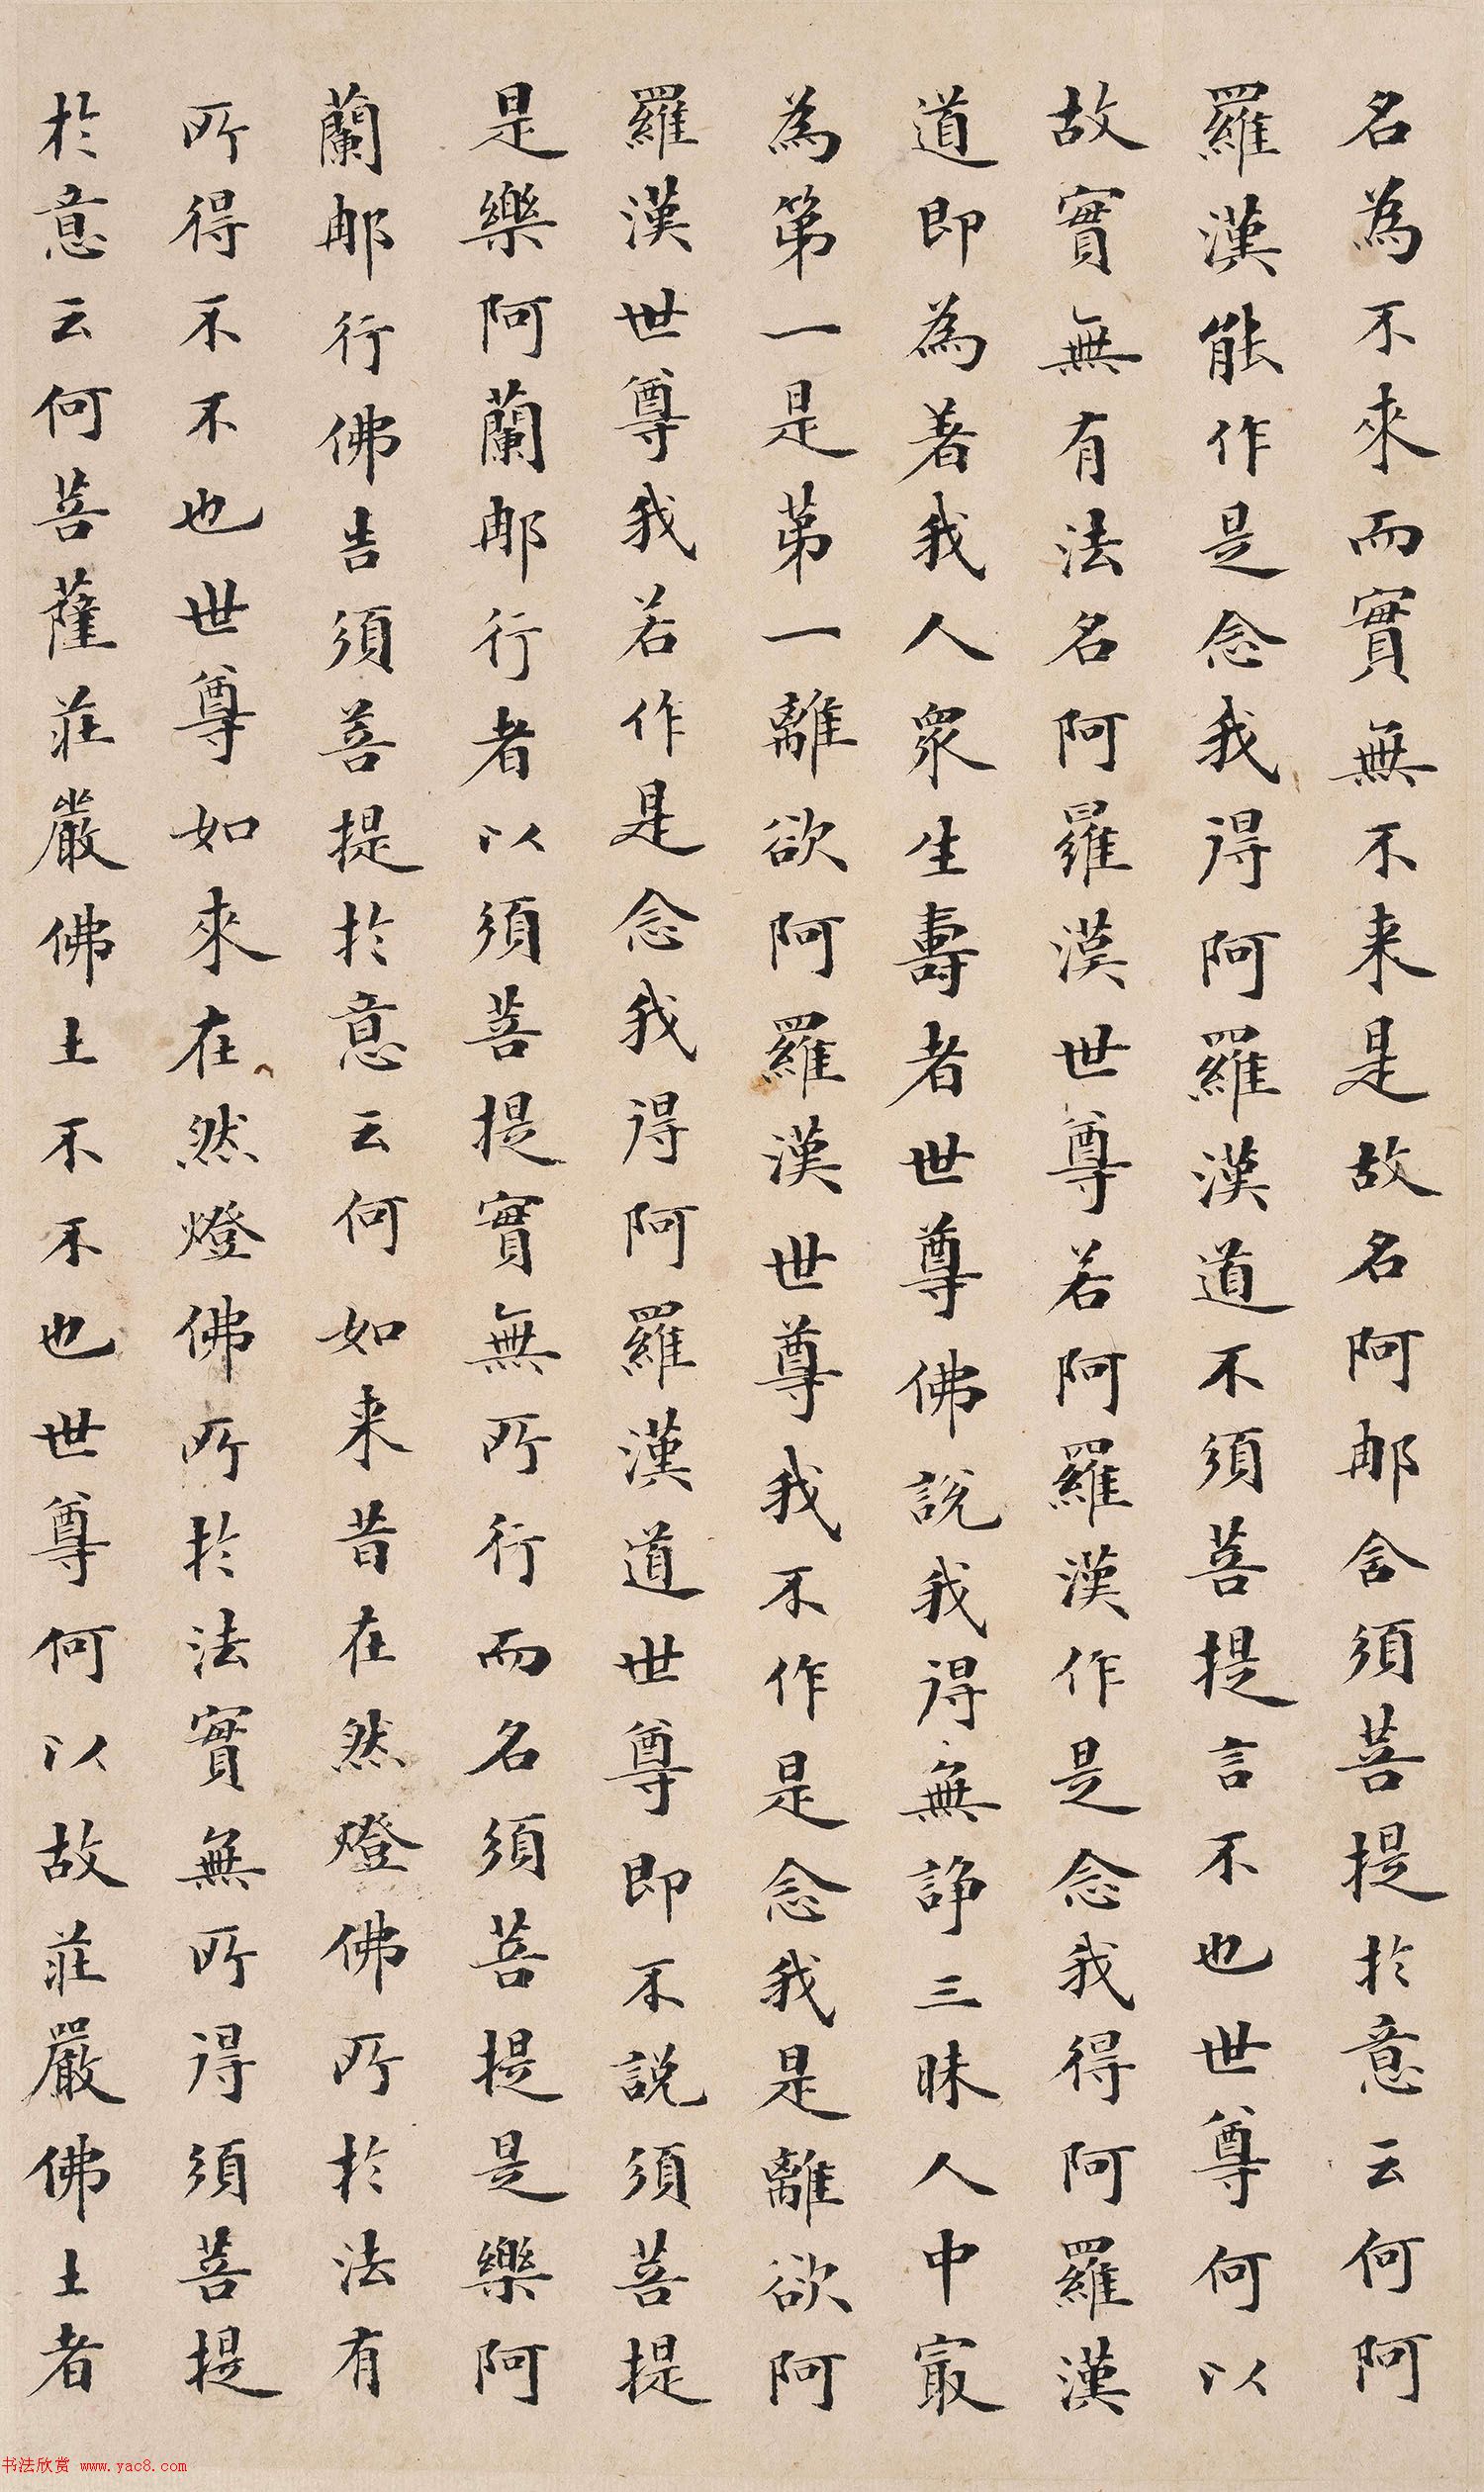 名為不來而實無不来是故名阿那含須菩提於意云何阿
羅漢能作是念我得阿羅漢道不須菩提言不也世尊何以
故實無有法名阿羅漢世尊若阿羅漢作是念我得阿羅漢
道即為著我人眾生壽者世尊佛說我得無諍三昧人中㝡
為第一是第一離欲阿羅漢世尊我不作是念我是離欲阿
羅漢世尊我若作是念我得阿羅漢道世尊即不說須菩提
是樂阿蘭那行者以須菩提實無所行而名須菩提是樂阿
蘭那行佛告須菩提於意云何如来昔在然燈佛所於法有
所得不不也世尊如來在然燈佛所於法實無所得須菩提
於意云何菩薩莊嚴佛土不不也世尊何以故莊嚴佛土者
书法欣赏 www.yac8.com